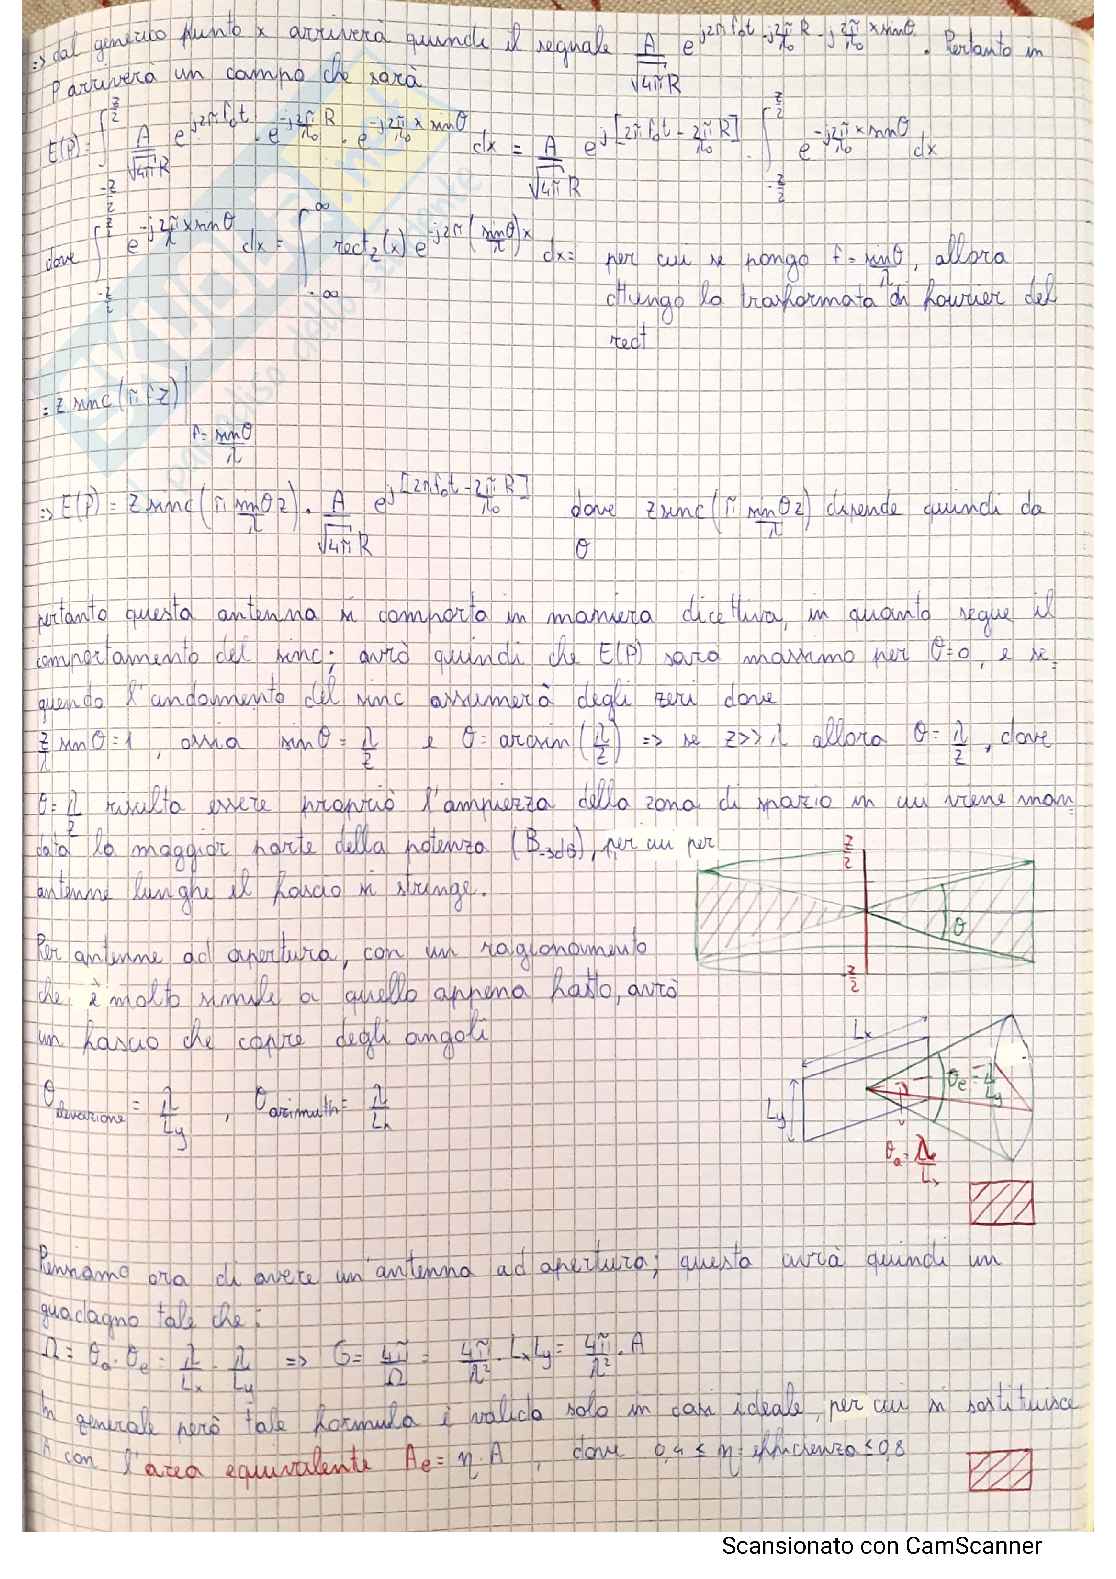 => dal generico punto x arriverà quindi il segnale A/(√4π R) e^{j2πf₀t - j2π/λ₀ R - j2π/λ₀ x sinθ}. Pertanto in
P arriverà un campo che sarà
E(P) = ∫_{-z/2}^{z/2} A/(√4π R) e^{j2πf₀t} · e^{-j2π/λ₀ R} · e^{-j2π/λ₀ x sinθ} dx = A/(√4π R) e^{j[2πf₀t - 2π/λ₀ R]} · ∫_{-z/2}^{z/2} e^{-j2π/λ₀ x sinθ} dx
dove ∫_{-z/2}^{z/2} e^{-j2π/λ x sinθ} dx = ∫_{-∞}^{∞} rect_z(x) e^{-j2π(sinθ/λ)x} dx = per cui se pongo f = sinθ/λ, allora
ottengo la trasformata di fourier del
rect
= z sinc(π f z)|
f = sinθ/λ
=> E(P) = z sinc(π sinθ/λ z) · A/(√4π R) e^{j[2πf₀t - 2π/λ₀ R]} dove z sinc(π sinθ/λ z) dipende quindi da
θ
pertanto questa antenna si comporta in maniera direttiva, in quanto segue il
comportamento del sinc; avrò quindi che E(P) sarà massimo per θ=0, e se_
guendo l'andamento del sinc assumerà degli zeri dove
z/λ sinθ = 1, ossia sinθ = λ/z e θ = arcsin(λ/z) => se z >> λ allora θ = λ/z, dove
θ = λ/z risulta essere proprio l'ampiezza della zona di spazio in cui viene man_
data la maggior parte della potenza (B-3dB), per cui per
antenne lunghe il fascio si stringe.
z/2
θ
-z/2
Per antenne ad apertura, con un ragionamento
che è molto simile a quello appena fatto, avrò
un fascio che copre degli angoli
θelevazione = λ/Ly , θazimuth = λ/Lx
Lx
Ly
θe = λ/Ly
θa = λ/Lx
Pensiamo ora di avere un'antenna ad apertura; questa avrà quindi un
guadagno tale che:
Ω = θa · θe = λ/Lx · λ/Ly => G = 4π/Ω = 4π/λ² · LxLy = 4π/λ² · A
In generale però tale formula è valida solo in casi ideale, per cui si sostituisce
A con l'area equivalente Ae = η · A , dove 0,4 ≤ η = efficienza ≤ 0,8
Scansionato con CamScanner